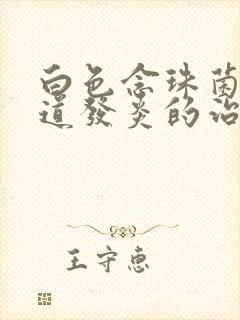 白色念珠菌
道發炎的治
王守惠